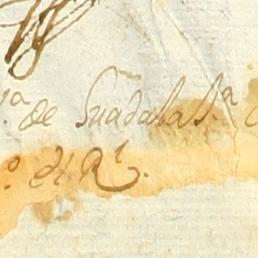 .ª de Guadalas.ª
.º el R.ˡ